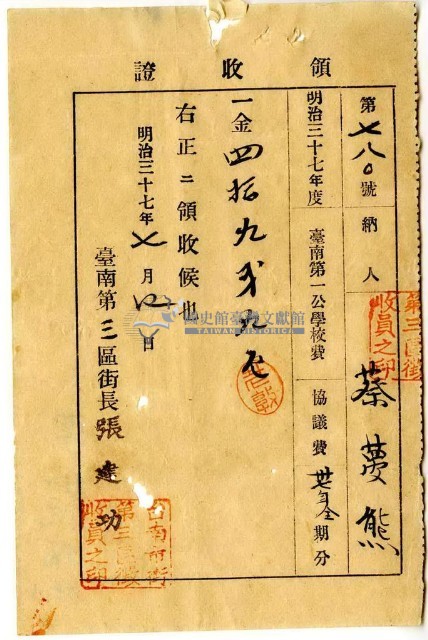 領收證
第七八〇號 納人 蔡夢熊
明治三十七年度 臺南第一公學校費 協議費 全期分
一金四拾九
右正ニ領收候也
明治三十七年七月 日
臺南第三區街長張建功
第三區街
收員之印
台南市街
第三區徵
收員之印
國史館臺灣文獻館
TAIWAN HISTORICA